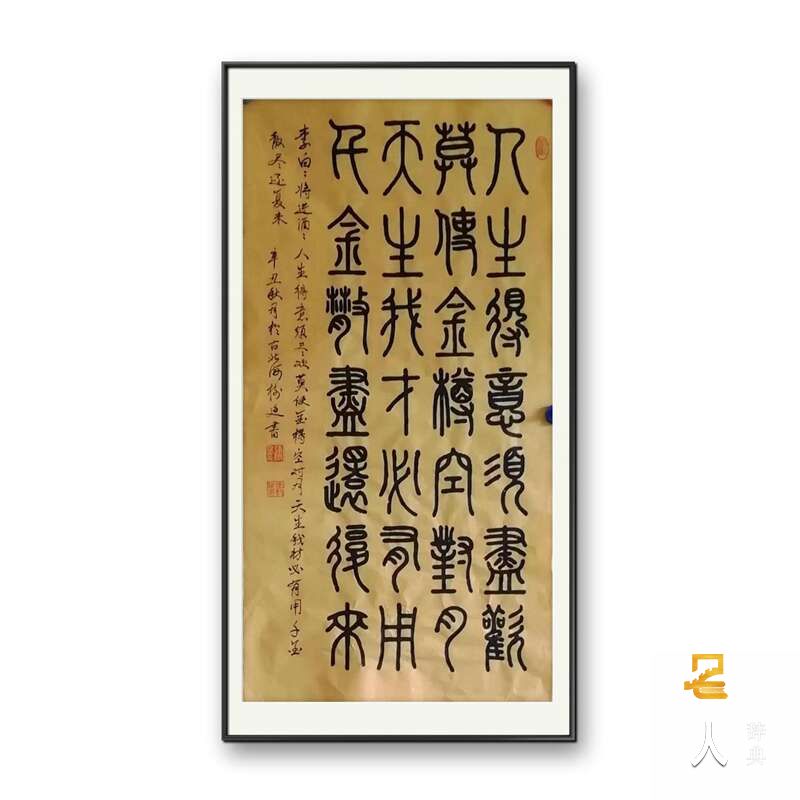 人生得意須盡歡
莫使金樽空對月
天生我才必有用
千金散盡還復來
李白:将进酒:人生得意须尽欢莫使金樽空对月天生我材必有用千金
散尽还复来 辛丑秋月於古 书
人
辞典